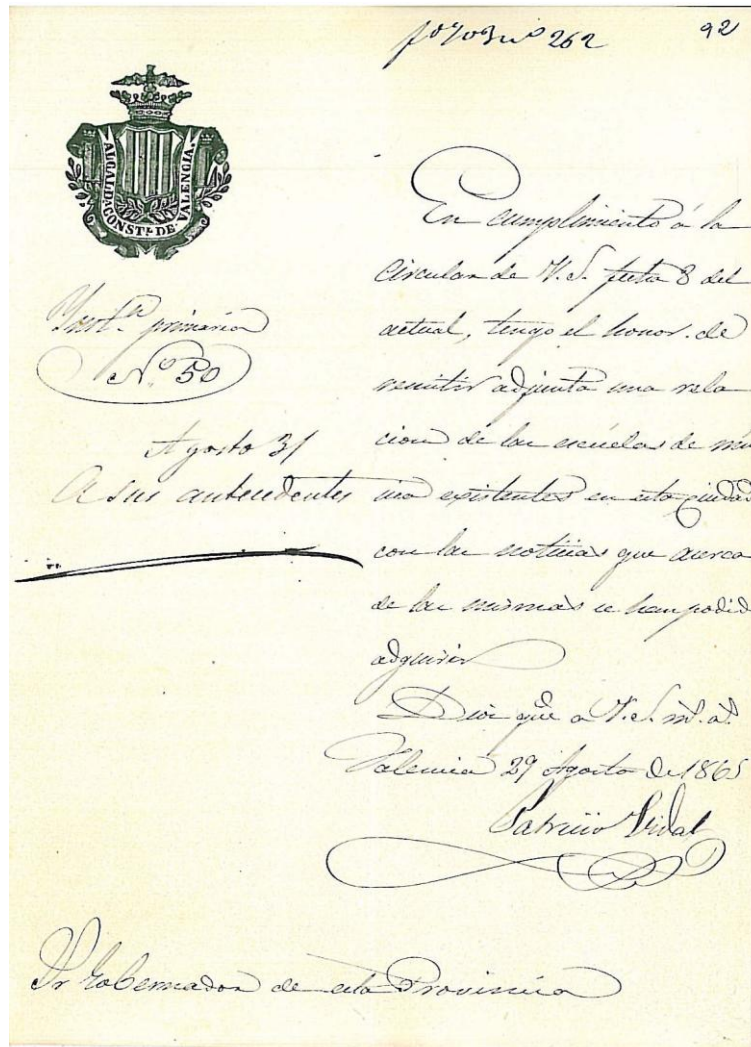 fº 703 nº 262
92
ALCALDª CONSTª DE VALENCIA
Instⁿ primaria
Nº 50
Agosto 31
A sus antecedentes
En cumplimiento á la
circular de V.S. fecha 8 del
actual, tengo el honor de
remitir adjunta una rela
cion de las escuelas de mú
sica existentes en esta ciudad
con las noticias que acerca
de las mismas se han podid
adquirir
Dios gue a V.S. m.s a.s
Valencia 29 Agosto de 1865
Patricio Vidal
Sr Gobernador de esta Provincia